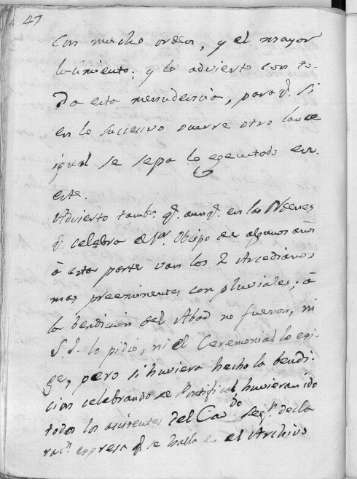 47
con mucho orden, y el mayor
lucimiento; y lo advierto con to-
da esta menudencia, para q. si
en lo succesivo ocurre otro lance
igual se sepa lo egecutado en
este.
Advierto tambn. q. aunq. en las
q. celebra el Sr. Obispo de algunos años
à esta parte van los 2 Arcedianos
mas preeminentes con pluviales, à
la bendicion del Abad no fueron, ni
S. I. lo pidio, ni el Ceremonial lo exi-
ge, pero si huviera hecho la bendi-
cion celebrando de Pontifical huvieran ido
todos los asistentes del Cavdo. segn. decla-
racn. expresa q. se halla en el Archivo